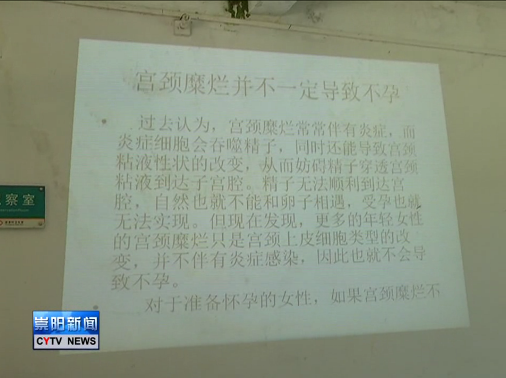 宫颈糜烂并不一定导致不孕
过去认为，宫颈糜烂常常伴有炎症，而
炎症细胞会吞噬精子，同时还能导致宫颈
粘液性状的改变，从而妨碍精子穿透宫颈
粘液到达子宫腔。精子无法顺利到达宫
腔，自然也就不能和卵子相遇，受孕也就
无法实现。但现在发现，更多的年轻女性
的宫颈糜烂只是宫颈上皮细胞类型的改
变，并不伴有炎症感染，因此也就不会导
致不孕。
对于准备怀孕的女性，如果宫颈糜烂不
察室
崇阳新闻
CYTV NEWS